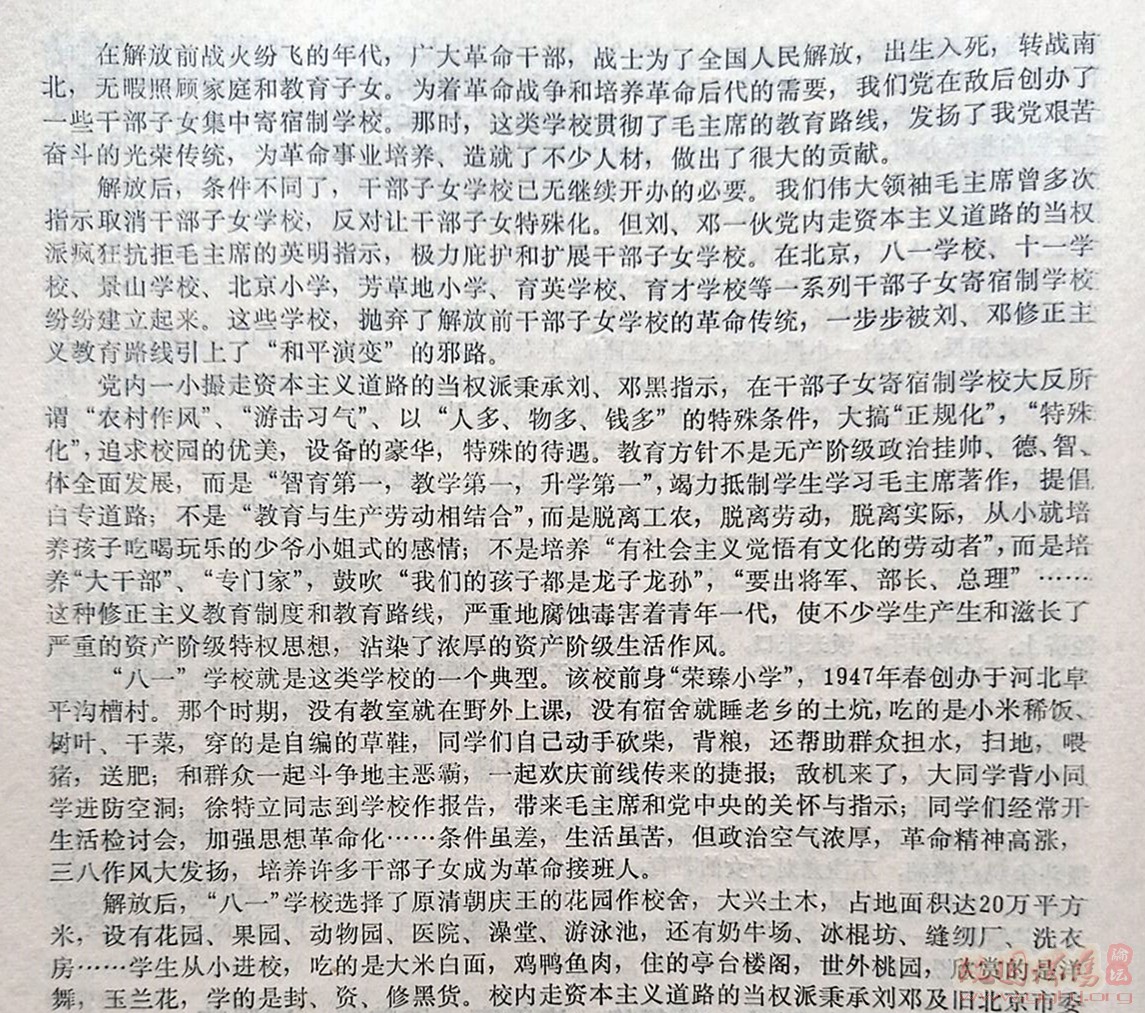 在解放前战火纷飞的年代，广大革命干部，战士为了全国人民解放，出生入死，转战南
北，无暇照顾家庭和教育子女。为着革命战争和培养革命后代的需要，我们党在敌后创办了
一些干部子女集中寄宿制学校。那时，这类学校贯彻了毛主席的教育路线，发扬了我党艰苦
奋斗的光荣传统，为革命事业培养、造就了不少人材，做出了很大的贡献。
解放后，条件不同了，干部子女学校已无继续开办的必要。我们伟大领袖毛主席曾多次
指示取消干部子女学校，反对让干部子女特殊化。但刘、邓一伙党内走资本主义道路的当权
派疯狂抗拒毛主席的英明指示，极力庇护和扩展干部子女学校。在北京，八一学校、十一学
校、景山学校、北京小学，芳草地小学、育英学校、育才学校等一系列干部子女寄宿制学校
纷纷建立起来。这些学校，抛弃了解放前干部子女学校的革命传统，一步步被刘、邓修正主
义教育路线引上了“和平演变”的邪路。
党内一小撮走资本主义道路的当权派秉承刘、邓黑指示，在干部子女寄宿制学校大反所
谓“农村作风”、“游击习气”、以“人多、物多、钱多”的特殊条件，大搞“正规化”，“特殊
化”，追求校园的优美，设备的豪华，特殊的待遇。教育方针不是无产阶级政治挂帅、德、智、
体全面发展，而是“智育第一，教学第一，升学第一”，竭力抵制学生学习毛主席著作，提倡
白专道路；不是“教育与生产劳动相结合”，而是脱离工农，脱离劳动，脱离实际，从小就培
养孩子吃喝玩乐的少爷小姐式的感情；不是培养“有社会主义觉悟有文化的劳动者”，而是培
养“大干部”、“专门家”，鼓吹“我们的孩子都是龙子龙孙”，“要出将军、部长、总理”……
这种修正主义教育制度和教育路线，严重地腐蚀毒害着青年一代，使不少学生产生和滋长了
严重的资产阶级特权思想，沾染了浓厚的资产阶级生活作风。
“八一”学校就是这类学校的一个典型。该校前身“荣臻小学”，1947年春创办于河北阜
平沟槽村。那个时期，没有教室就在野外上课，没有宿舍就睡老乡的土炕，吃的是小米稀饭、
树叶、干菜，穿的是自编的草鞋，同学们自己动手砍柴，背粮，还帮助群众担水，扫地，喂
猪，送肥；和群众一起斗争地主恶霸，一起欢庆前线传来的捷报；敌机来了，大同学背小同
学进防空洞；徐特立同志到学校作报告，带来毛主席和党中央的关怀与指示；同学们经常开
生活检讨会，加强思想革命化……条件虽差，生活虽苦，但政治空气浓厚，革命精神高涨，
三八作风大发扬，培养许多干部子女成为革命接班人。
解放后，“八一”学校选择了原清朝庆王的花园作校舍，大兴土木，占地面积达20万平方
米，设有花园、果园、动物园、医院、澡堂、游泳池，还有奶牛场、冰棍坊、缝纫厂、洗衣
房……学生从小进校，吃的是大米白面，鸡鸭鱼肉，住的亭台楼阁，世外桃园，欣赏的是洋
舞，玉兰花，学的是封、资、修黑货。校内走资本主义道路的当权派秉承刘邓及旧北京市委